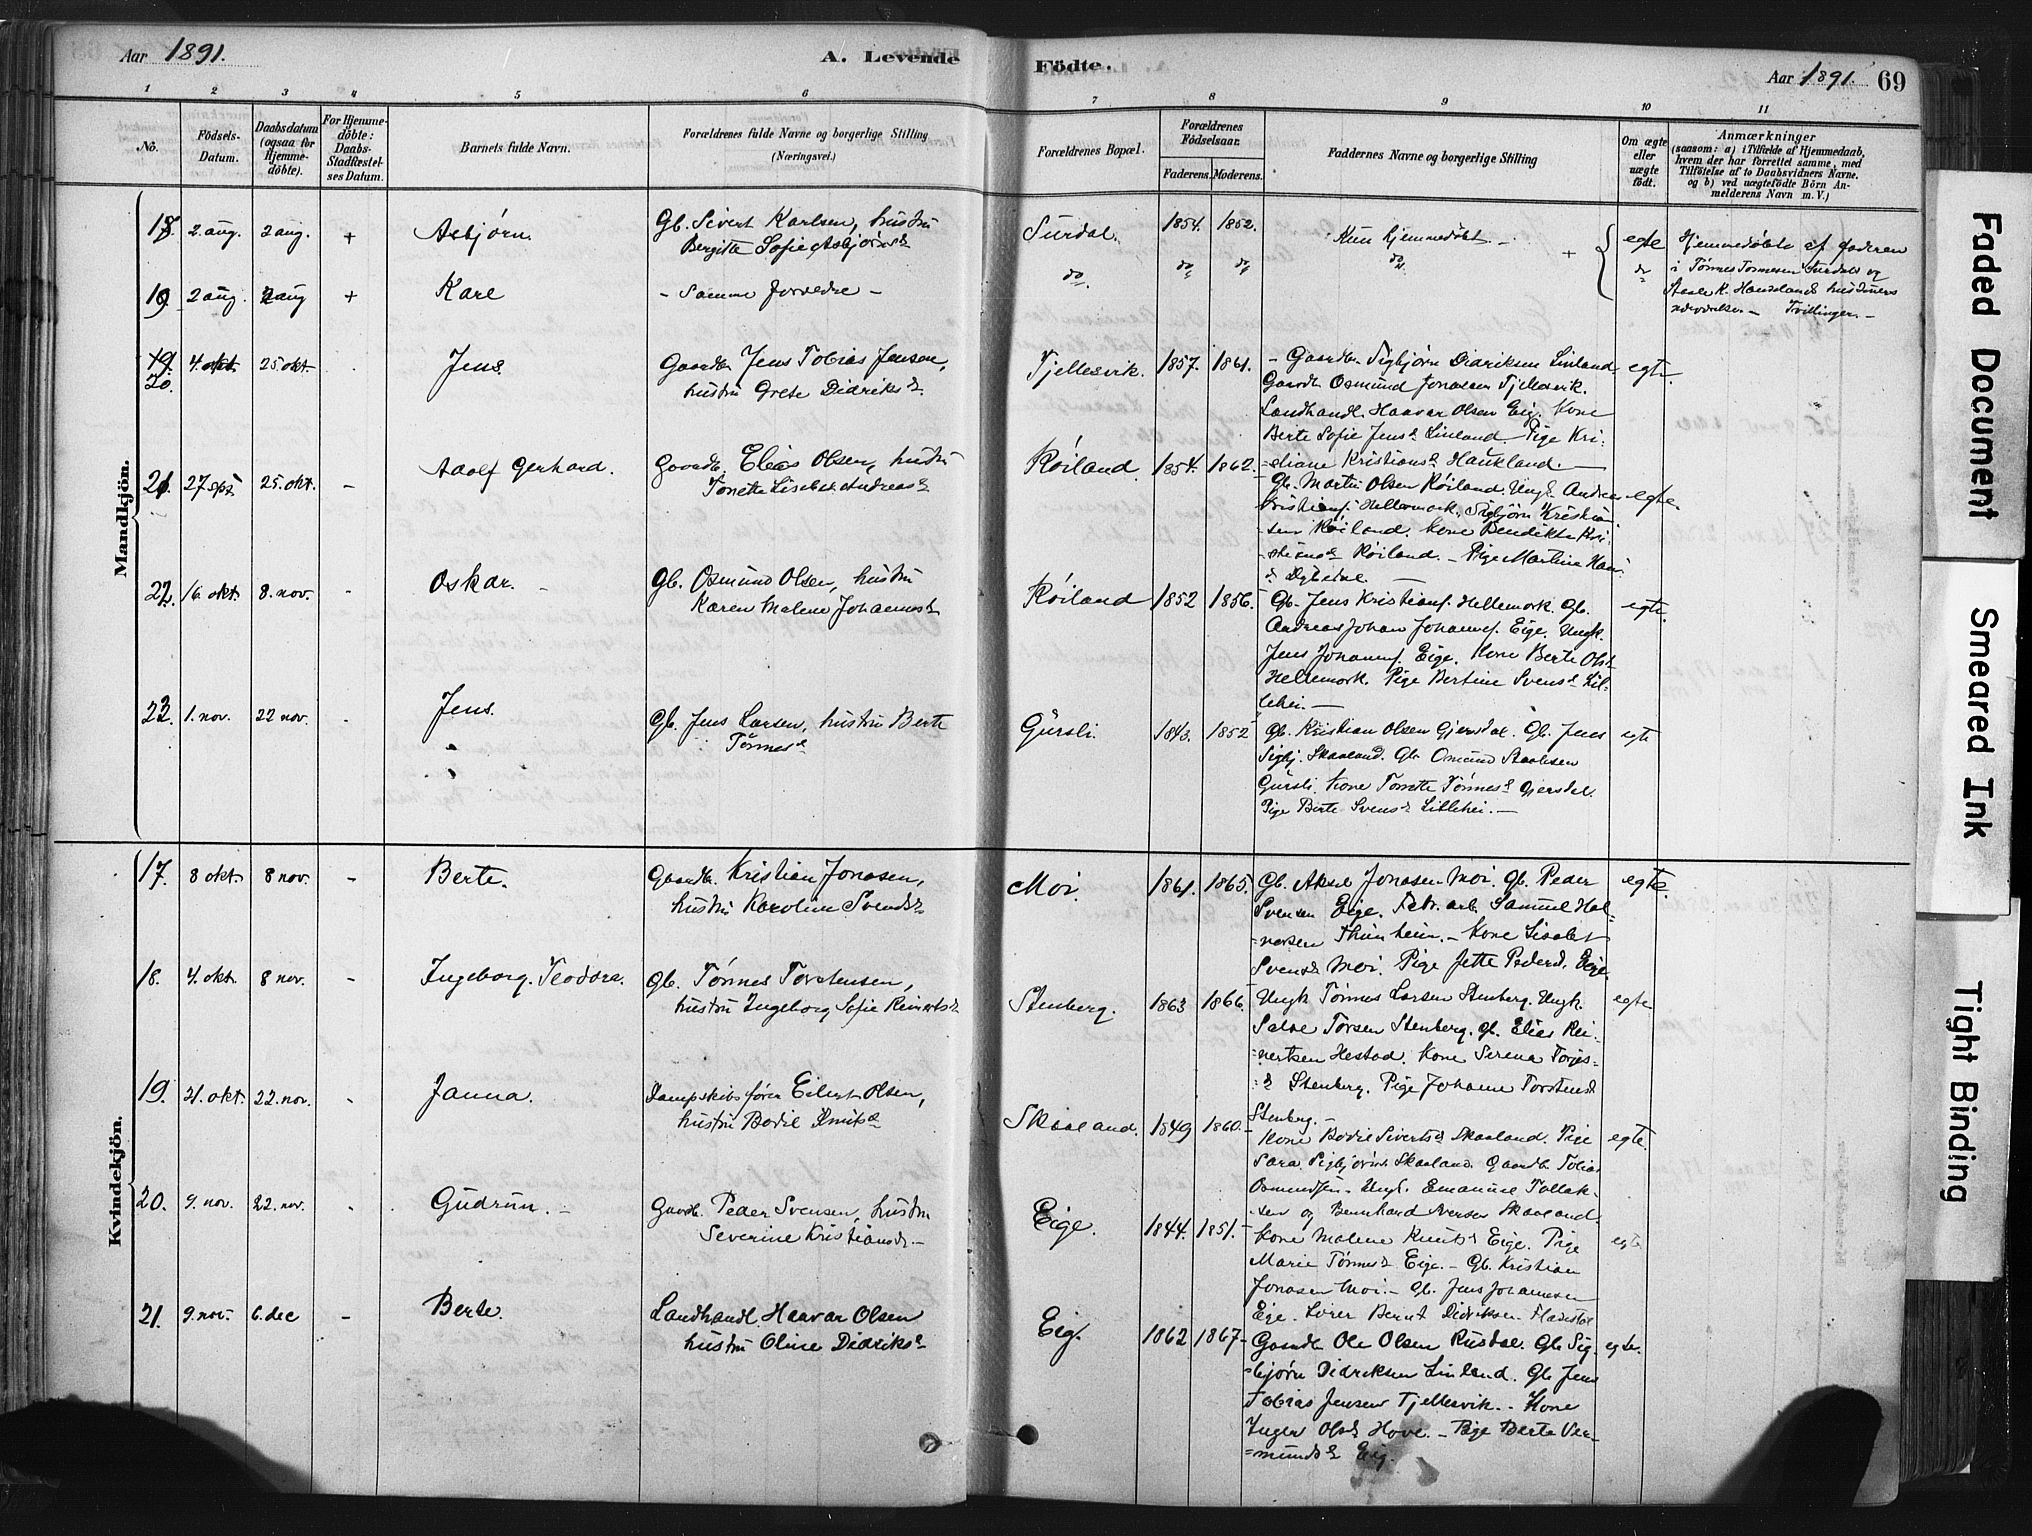 Aar 1891.
A. Levende Födte.
Aar 1891. 69
1 2 3 4 5 6 7 8 9 10 11
No.
Födsels-Datum.
Daabsdatum (ogsaa for Hjemmedöbte).
For Hjemmedöbte: Daabs-Stadfæstelses Datum.
Barnets fulde Navn.
Forældrenes fulde Navne og borgerlige Stilling
(Næringsvei.)
Forældrenes Bopæl.
Forældrenes Födselsaar.
Faderens. Moderens.
Faddernes Navne og borgerlige Stilling
Om ægte eller uægte födt.
Anmærkninger
(saasom: a) i Tilfælde af Hjemmedaab,
hvem der har forrettet samme, med
Tilföielse af to Daabsvidners Navne.
og b) ved uægtefödte Börn An-
melderens Navn m. V.)
Mandkjön.
18. 2. aug. 2 aug. + Asbjørn. Gb. Sivert Karlsen, hustru
Bergitte Sofie Asbjørnsd
Surdal. 1854. 1852. Kun hjemmedøbt. egte
Hjemmedøbte af faderen
i Tønnes Tonnesen Surdals og
K. Hauklands hustruers
nærværelse. — Tvillinger. —
19 2 aug. 2 aug + Kare — Samme forældre —
do do do do do
19.
20. 4. okt. 25. okt. Jens. Gaardb. Jens Tobias Jensen,
hustru Grete Didriksd.
Tjellesvik. 1857. 1861. — Gaardb. Sigbjørn Didriksen Linland. egte.
Gaardb Osmund Jonassen Tjellesvik.
Landhandl. Haavar Olsen Eig. Kone
Berte Sofie Jensd Linland. Pige Kri-
stiane Kristiansd Haukland. —
21. 27 spt 25. okt. - Adolf Gerhard. Gaardb. Elias Olsen, hustru
Tonette Lisebet Andreasd
Røiland. 1854. 1862. Gb. Martin Olsen Røiland. Ungk Andreas egte.
Kristiansen Hellemork. Sigbjørn Kristian-
sen Røiland. Kone Benedikte Kri-
stiansd Røiland. — Pige Martine Han-
22. 16. okt. 8. nov. - Oskar. — Gb. Osmund Olsen, hustru
Karen Malene Johannesd
Røiland 1852 1856. Gb. Jens Kristians. Hellemork. Gb. egte.
Andreas Johan Johannes. Eige. Ungk.
Jens Johannes. Eige. Kone Berte Olsd
Hellemork. Pige Bertine Svensd Lil-
lehei. —
23. 1. nov. 22 nov. - Jens. Gb. Jens Larsen, hustru Berte
Tønnesd
Gursli. 1843. 1852 Gb. Kristian Olsen Gjersdal. Gb. Jens egte
Sigbj. Skaaland. Gb. Osmund Staalesen
Gursli. Kone Tonette Tønnesd Gjersdal.
Pige Berte Svensd Lillehei. —
Kvindekjön.
17. 8 okt. 8 nov. - Berte. Gaardb. Kristian Jonasen,
hustru Karoline Svendsd
Moi. 1861. 1865. Gb. Aksel Jonasen Moi. Gb. Peder egte.
Svensen Eige. Fabr. arb. Samuel Hal-
vorsen Thunheim. — Kone Lisabet
Svensd Moi. Pige Jette Pedersd. Eige
18. 4. okt. 8 nov. - Ingeborg Teodora. Gb. Tønnes Torstensen,
hustru Ingeborg Sofie Reinertsd
Stenberg. 1863 1866. Ungk Tønnes Larsen Stenberg. Ungk. egte
Salve Torsen Stenberg. Gb. Elias Rei-
nertsen Hestad. Kone Serena Torjes-
d Stenberg. Pige Johanne Torstensd
Stenberg. —
19. 21. okt. 22. nov. - Janna. Dampskibsfører Eilert Olsen,
hustru Bodil Knutsd
Skaaland. 1849 1860. Kone Bodil Sivertsd Skaaland. Pige egte.
Sara Sigbjørnsd Skaaland. Gaardb. Tobias
Osmundsen. Ungk. Emanuel Tollak-
sen og Bernhard Iversen Skaaland.
20. 9. nov. 22. nov. - Gudrun. — Gaardb. Peder Svensen, hustru
Severine Kristiansd. —
Eige. 1844. 1851. Kone Malene Knutsd Eige. Pige egte
Marie Tønnesd Eige. — Gb. Kristian
Jonasen Moi. — Gb. Jens Johannesen
Eige. Lærer Bernt Didriksen
21. 9. nov. 6. dec - Berte. Landhandl. Haavar Olsen
hustru Oline Didriksd
Eig. 1862 1867. Gaardb Ole Olsen Rusdal. Gb. Sig- egte.
bjørn Didriksen Linland. Gb. Jens
Tobias Jensen Tjellesvik. Kone
Inger Olsd Hove. — Pige Berte Ver-
mundsd Eig.
Faded Document
Smeared Ink
Tight Binding